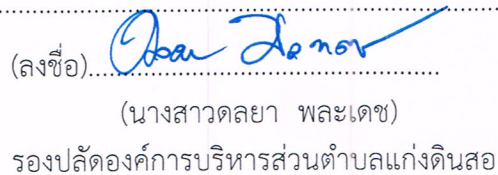 (ลงชื่อ)
(นางสาวดลยา พละเดช)
รองปลัดองค์การบริหารส่วนตำบลแก่งดินสอ